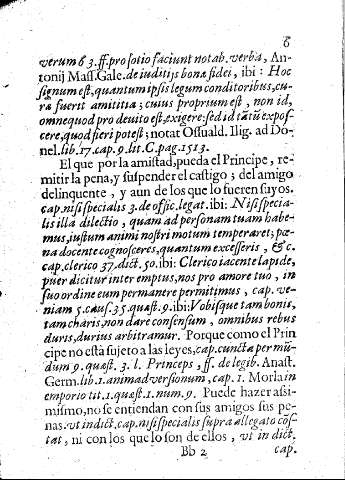 6
verum § 3. ff. pro sotio faciunt notab. verba, An-
tonij Mass. Gale. de iuditijs bonæ fidei, ibi: Hoc
signum est, quantum ipsis legum conditoribus, cu-
ræ fuerit amititia; cuius proprium est, non id,
omne quod pro deuito est, exigere: sed id tātū expos-
cere, quod fieri potest; notat Ossuald. Ilig. ad Do-
nel. lib. 17. cap. 9. lit. C. pag. 1513.
El que por la amistad, pueda el Principe, re-
mitir la pena, y suspender el castigo; del amigo
delinquente, y aun de los que lo fueren suyos.
cap. nisi specialis 3. de offic. legat. ibi: Nisi specia-
lis illa dilectio, quam ad personam tuam habe-
mus, iustum animi nostri motum temperaret; pœ-
na docente cognosceres, quantum excesseris, & c.
cap. clerico 37. dict. 50. ibi: Clerico iacente lapide,
puer dicitur interemptus, nos pro amore tuo, in
suo ordine eum permanere permitimus, cap. ve-
niam 5. caus. 35. quæst. 9. ibi: Vobisque tam bonis,
tam charis, non dare consensum, omnibus rebus
duris, durius arbitramur. Porque como el Prin
cipe no està sujeto a las leyes, cap. cuncta per mū-
dum 9. quæst. 3. l. Princeps, ff. de legib. Anast.
Germ. lib. 1. animadversionum, cap. 1. Morla in
emporio tit. 1. quæst. 1. num. 9. Puede hazer assi-
mismo, no se entiendan con sus amigos sus pe-
nas. vt in dict. cap. nisi specialis supra allegato cōs-
tat, ni con los que lo son de ellos, vt in dict.
Bb 2 cap.